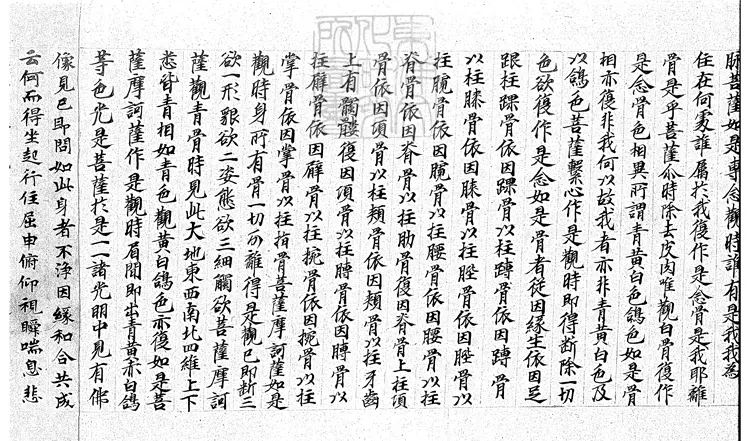 脉菩薩如是專念觀時誰有是我我為
住在何處誰屬於我復作是念骨是我耶離
骨是乎菩薩尒時除去皮肉唯觀白骨復作
是念骨色相異所謂青黃白色鴿色如是骨
相亦復非我何以故我者亦非青黃白色及
以鴿色菩薩繫心作是觀時即得斷除一切
色欲復作是念如是骨者從因緣生依因足
跟柱踝骨依因踝骨以柱蹲骨依因蹲骨
以柱膝骨依因膝骨以柱䏶骨依因䏶骨以
柱臗骨依因臗骨以柱腰骨依因腰骨以柱
脊骨依因脊骨以柱肋骨復因脊骨上柱項
骨依因項骨以柱頰骨依因頰骨以柱牙齒
上有髑髏復因項骨以柱膊骨依因膊骨以
柱臂骨依因臂骨以柱捥骨依因捥骨以柱
掌骨依因掌骨以柱指骨菩薩摩訶薩如是
觀時身所有骨一切分離得是觀已即斷三
欲一形貌欲二姿態欲三細觸欲菩薩摩訶
薩觀青骨時見此大地東西南北四維上下
悉皆青相如青色觀黃白鴿色亦復如是菩
薩摩訶薩作是觀時眉間即出青黃赤白鴿
等色光是菩薩於是一一諸光明中見有佛
像見已即問如此身者不淨因緣和合共成
云何而得坐起行住屈申俯仰視瞬喘息悲